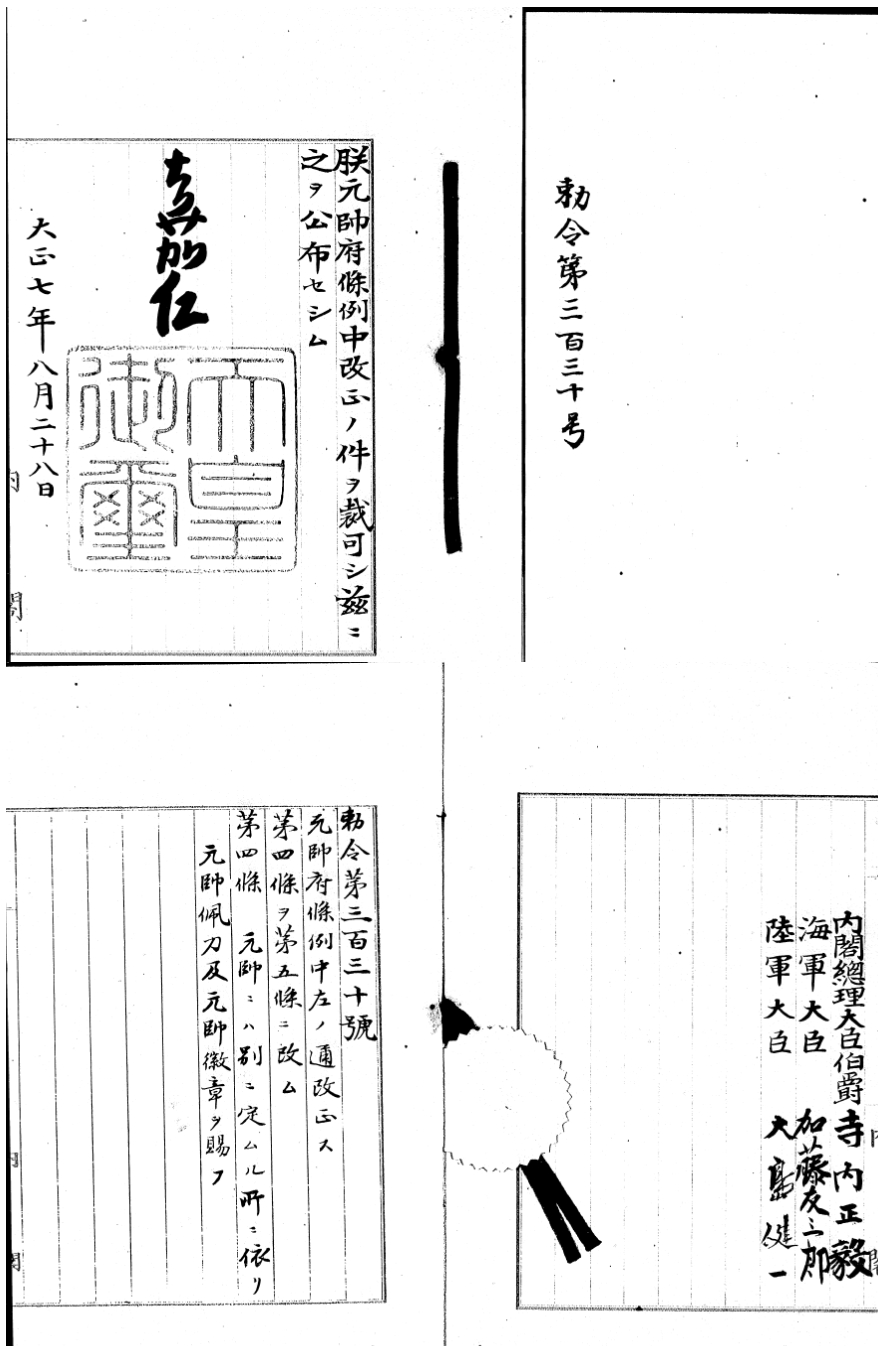 勅令第三百三十号
朕元帥府條例中改正ノ件ヲ裁可シ茲ニ
之ヲ公布セシム
嘉仁
天皇御璽
大正七年八月二十八日
内閣
内閣總理大臣伯爵 寺内正毅
海軍大臣 加藤友三郎
陸軍大臣 大島健一
内閣
勅令第三百三十號
元帥府條例中左ノ通改正ス
第四條ヲ第五條ニ改ム
第四條 元帥ニハ別ニ定ムル所ニ依リ
元帥佩刀及元帥徽章ヲ賜フ
内閣